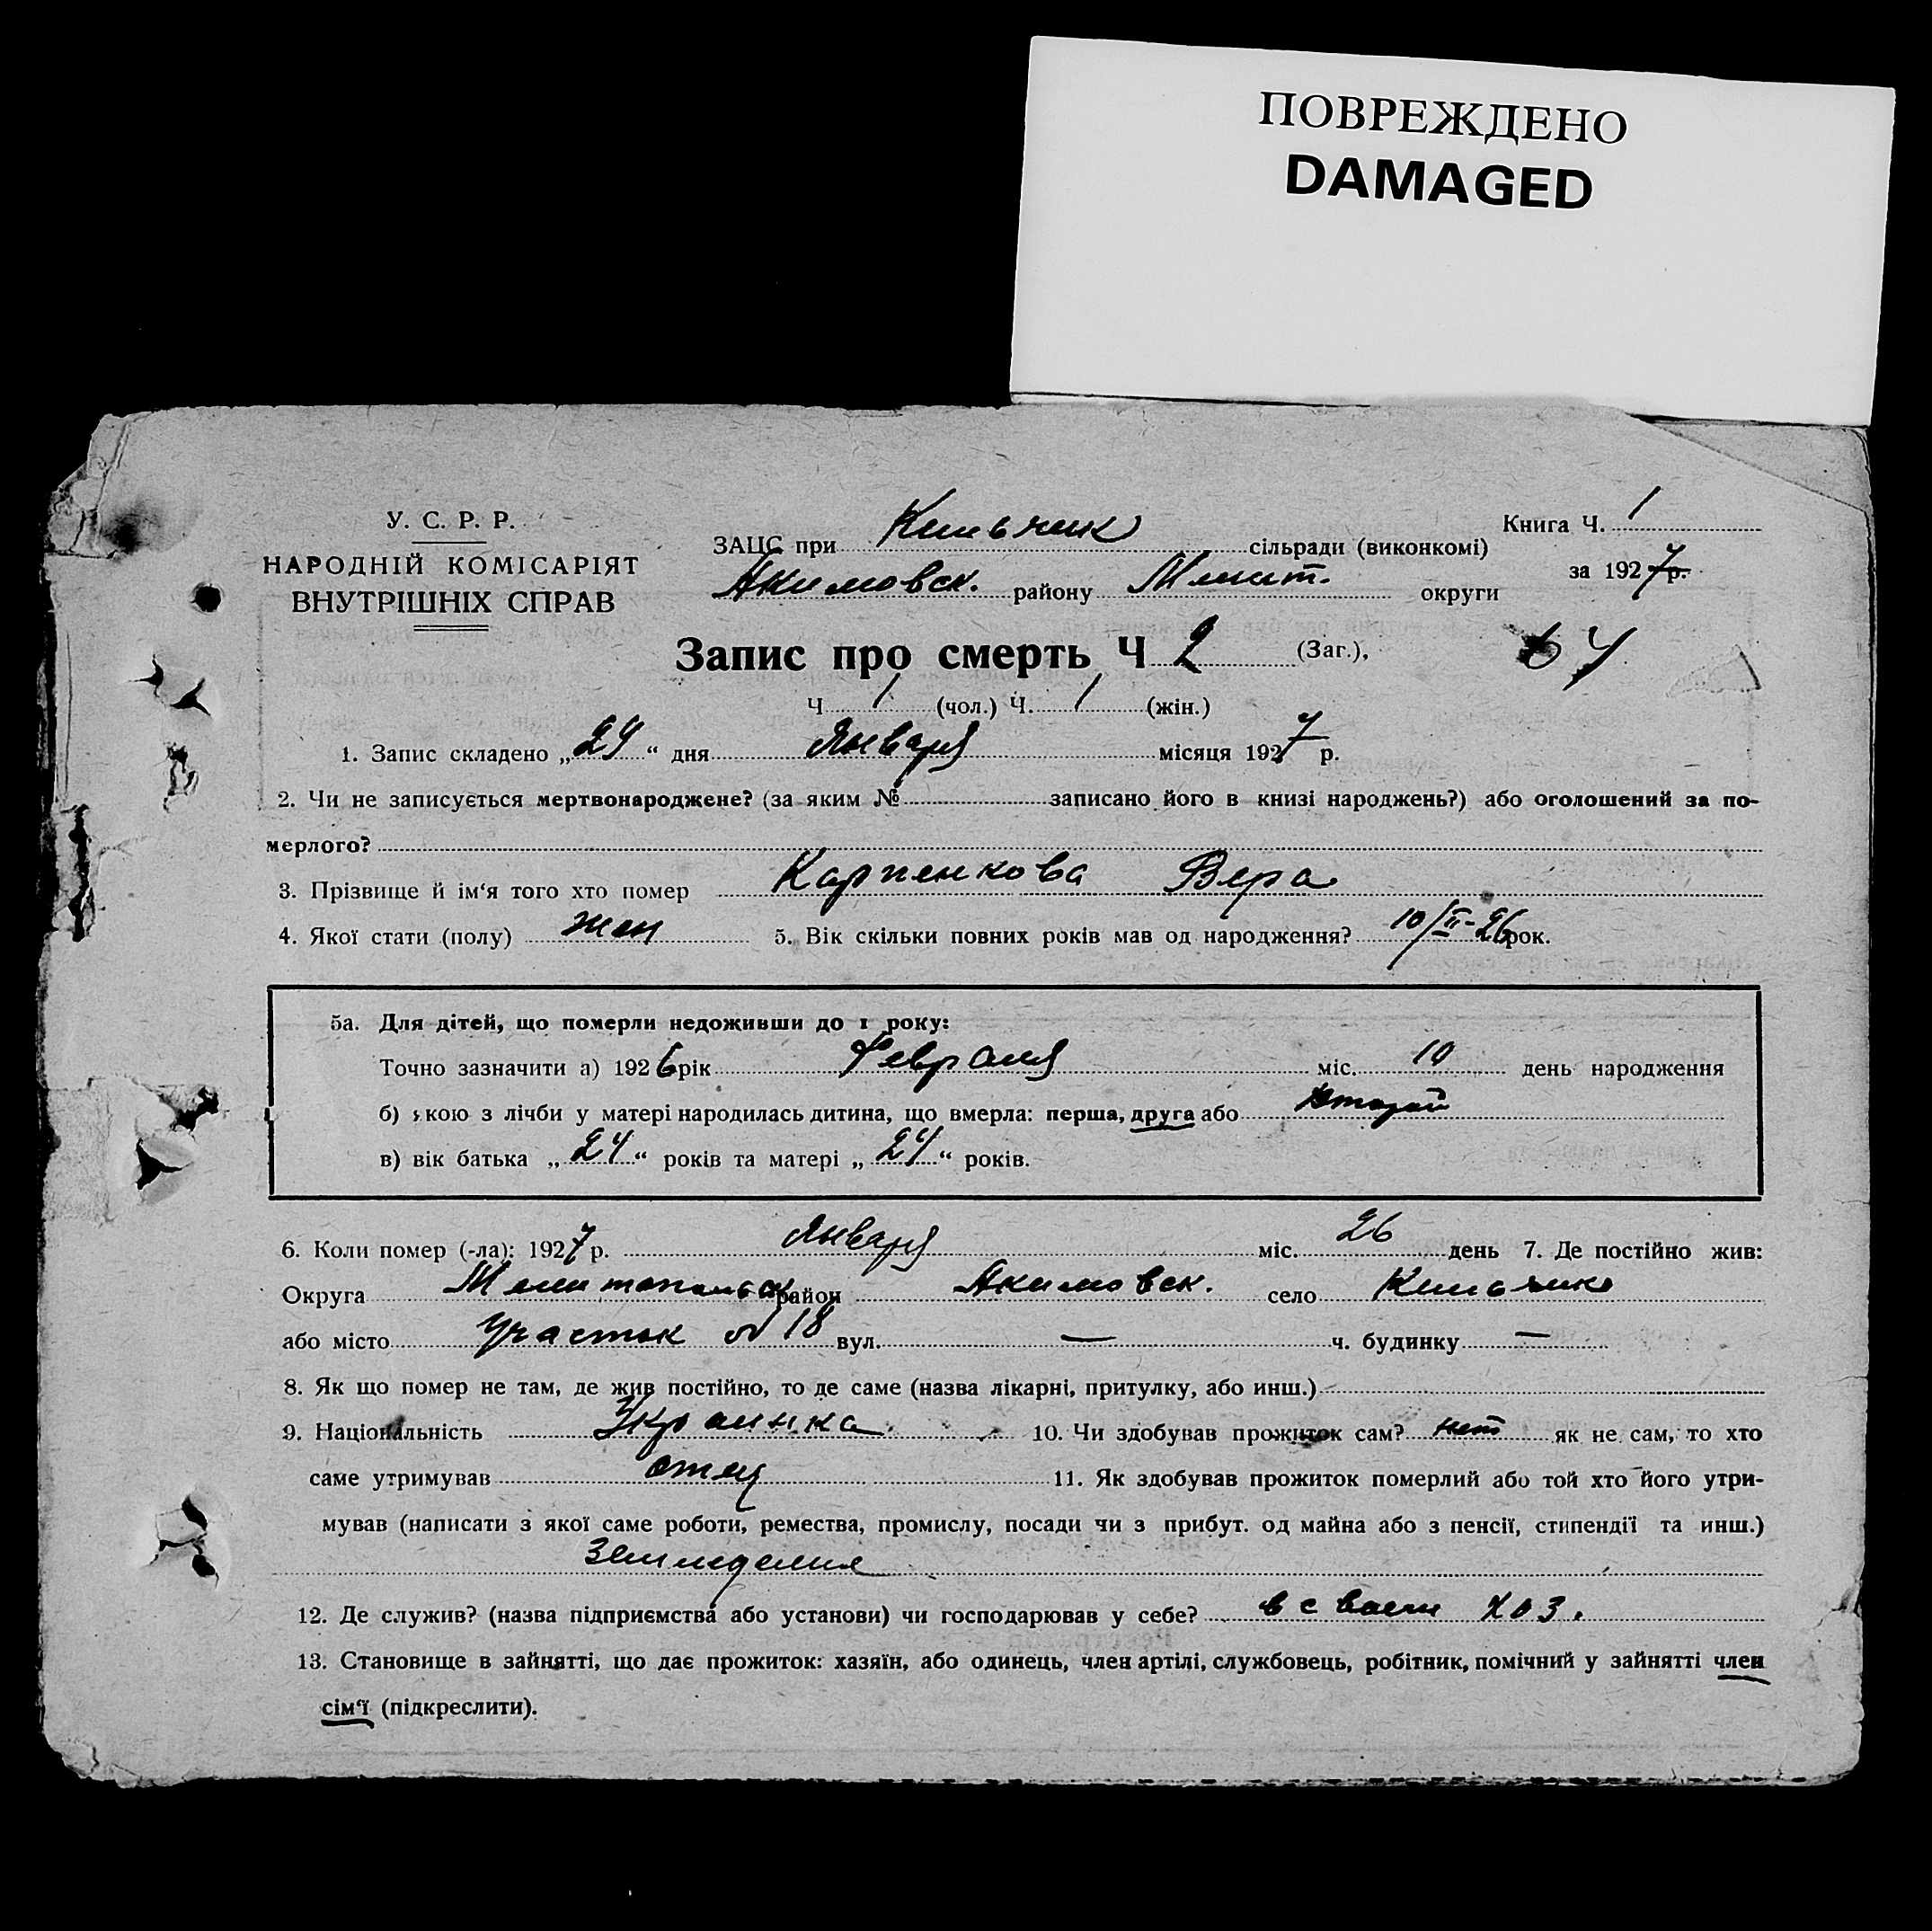 ПОВРЕЖДЕНО
DAMAGED
У. С. Р. Р.
НАРОДНІЙ КОМІСАРІЯТ
ВНУТРІШНІХ СПРАВ
ЗАЦС при Кильчик сільради (виконкомі)
Акимовск. району Мелит. округи
Книга Ч. 1
за 1927 р.
Запис про смерть Ч 2 (Заг.),
Ч 1 (чол.) Ч. 1 (жін.)
1. Запис складено „24“ дня Января місяця 1927 р.
2. Чи не записується мертвонароджене? (за яким № записано його в книзі народжень?) або оголошений за по-
мерлого?
3. Прізвище й ім‘я того хто помер Карпенкова Вера
4. Якої стати (полу) жен 5. Вік скільки повних років мав од народження? 10/II-26 рок.
5а. Для дітей, що померли недоживши до 1 року:
Точно зазначити а) 1926 рік Февраля міс. 10 день народження
б) якою з лічби у матері народилась дитина, що вмерла: перша, друга або Второй
в) вік батька „24“ років та матері „24“ років.
6. Коли помер (-ла): 1927 р. Января міс. 26 день 7. Де постійно жив:
Округа Мелитопольск район Акимовск. село Кильчик
або місто Участок № 18 вул. — ч. будинку —
8. Як що помер не там, де жив постійно, то де саме (назва лікарні, притулку, або инш.)
9. Національність Украинка 10. Чи здобував прожиток сам? нет як не сам, то хто
саме утримував отец 11. Як здобував прожиток померлий або той хто його утри-
мував (написати з якої саме роботи, ремества, промислу, посади чи з прибут. од майна або з пенсії, стипендії та инш.)
Земледелия
12. Де служив? (назва підприємства або установи) чи господарював у себе? в своем хоз.
13. Становище в зайнятті, що дає прожиток: хазяїн, або одинець, член артілі, службовець, робітник, помічний у зайнятті член
сім‘ї (підкреслити).